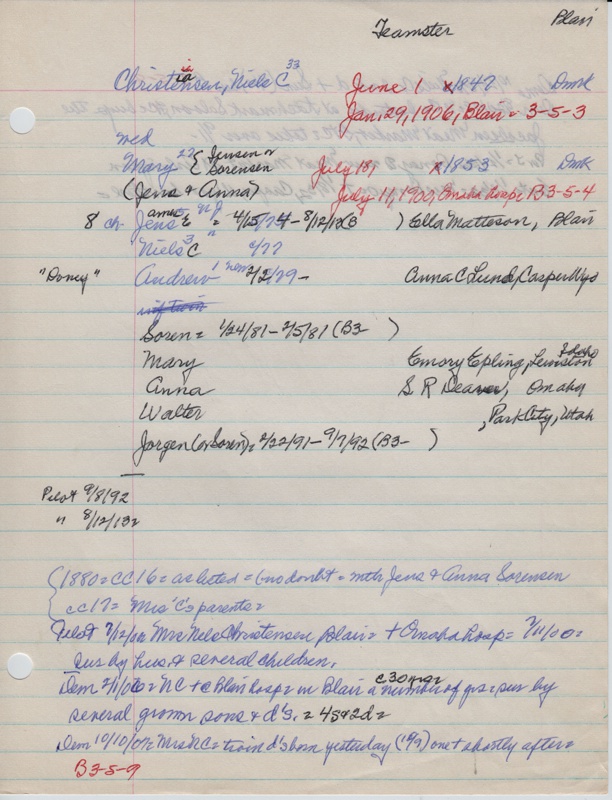 Teamster Blair
Christensen, Niels C 33 June 1 1847 Dmrk
ia
Jan 29, 1906, Blair = 3-5-3
wed
Mary 27 { Jensen or Sorensen July 18, 1853 Dmk
(Jens & Anna) July 11, 1900, Omaha hosp B3-5-4
8 ch Jens E = 4/15/74 - 8/12/13 (B ) Ella Matteson, Blair
Niels C 3 " c/77
"Doney" Andrew 1 2/2/79 - Anna C Lund, Casper Wyo
inf twin
Soren = 1/24/81 - 2/5/81 (B3- )
Mary Emory Epling, Lewiston Idaho
Anna S R Deaver, Omaha
Walter , Park City, Utah
Jorgen (or Soren) = 2/22/91 - 9/7/92 (B3- )
Pilot 9/8/92
" 8/12/13 =
{ 1880 = CC16 = as listed = (no doubt = with Jens & Anna Sorensen
cc17 = Mrs 'C's parents =
Pilot 7/12/00 = Mrs Nels Christensen Blair = + Omaha hosp = 7/11/00 =
sur by hus & several children.
Dem 2/1/06 = NC + c Blair hosp = in Blair a number of yrs = sur by
c30 yrs =
several grown sons & d's. = 4s & 2d =
Dem 10/10/07 = Mrs NC = twin d's born yesterday (10/9) one + shortly after =
B3-5-9